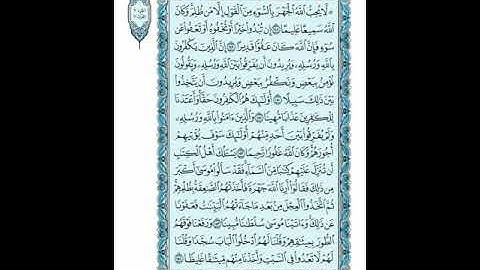 ۞ لَّا يُحِبُّ ٱللَّهُ ٱلْجَهْرَ بِٱلسُّوٓءِ مِنَ ٱلْقَوْلِ إِلَّا مَن ظُلِمَ ۚ وَكَانَ
ٱللَّهُ سَمِيعًا عَلِيمًا إِن تُبْدُوا۟ خَيْرًا أَوْ تُخْفُوهُ أَوْ تَعْفُوا۟ عَن
سُوٓءٍ فَإِنَّ ٱللَّهَ كَانَ عَفُوًّا قَدِيرًا إِنَّ ٱلَّذِينَ يَكْفُرُونَ
بِٱللَّهِ وَرُسُلِهِۦ وَيُرِيدُونَ أَن يُفَرِّقُوا۟ بَيْنَ ٱللَّهِ وَرُسُلِهِۦ وَيَقُولُونَ
نُؤْمِنُ بِبَعْضٍ وَنَكْفُرُ بِبَعْضٍ وَيُرِيدُونَ أَن يَتَّخِذُوا۟
بَيْنَ ذَٰلِكَ سَبِيلًا أُو۟لَٰٓئِكَ هُمُ ٱلْكَٰفِرُونَ حَقًّا ۚ وَأَعْتَدْنَا
لِلْكَٰفِرِينَ عَذَابًا مُّهِينًا وَٱلَّذِينَ ءَامَنُوا۟ بِٱللَّهِ وَرُسُلِهِۦ
وَلَمْ يُفَرِّقُوا۟ بَيْنَ أَحَدٍ مِّنْهُمْ أُو۟لَٰٓئِكَ سَوْفَ يُؤْتِيهِمْ
أُجُورَهُمْ ۗ وَكَانَ ٱللَّهُ غَفُورًا رَّحِيمًا يَسْـَٔلُكَ أَهْلُ ٱلْكِتَٰبِ
أَن تُنَزِّلَ عَلَيْهِمْ كِتَٰبًا مِّنَ ٱلسَّمَآءِ ۚ فَقَدْ سَأَلُوا۟ مُوسَىٰٓ أَكْبَرَ
مِن ذَٰلِكَ فَقَالُوٓا۟ أَرِنَا ٱللَّهَ جَهْرَةً فَأَخَذَتْهُمُ ٱلصَّٰعِقَةُ بِظُلْمِهِمْ ۚ
ثُمَّ ٱتَّخَذُوا۟ ٱلْعِجْلَ مِنۢ بَعْدِ مَا جَآءَتْهُمُ ٱلْبَيِّنَٰتُ فَعَفَوْنَا
عَن ذَٰلِكَ ۚ وَءَاتَيْنَا مُوسَىٰ سُلْطَٰنًا مُّبِينًا وَرَفَعْنَا فَوْقَهُمُ
ٱلطُّورَ بِمِيثَٰقِهِمْ وَقُلْنَا لَهُمُ ٱدْخُلُوا۟ ٱلْبَابَ سُجَّدًا وَقُلْنَا
لَهُمْ لَا تَعْدُوا۟ فِى ٱلسَّبْتِ وَأَخَذْنَا مِنْهُم مِّيثَٰقًا غَلِيظًا